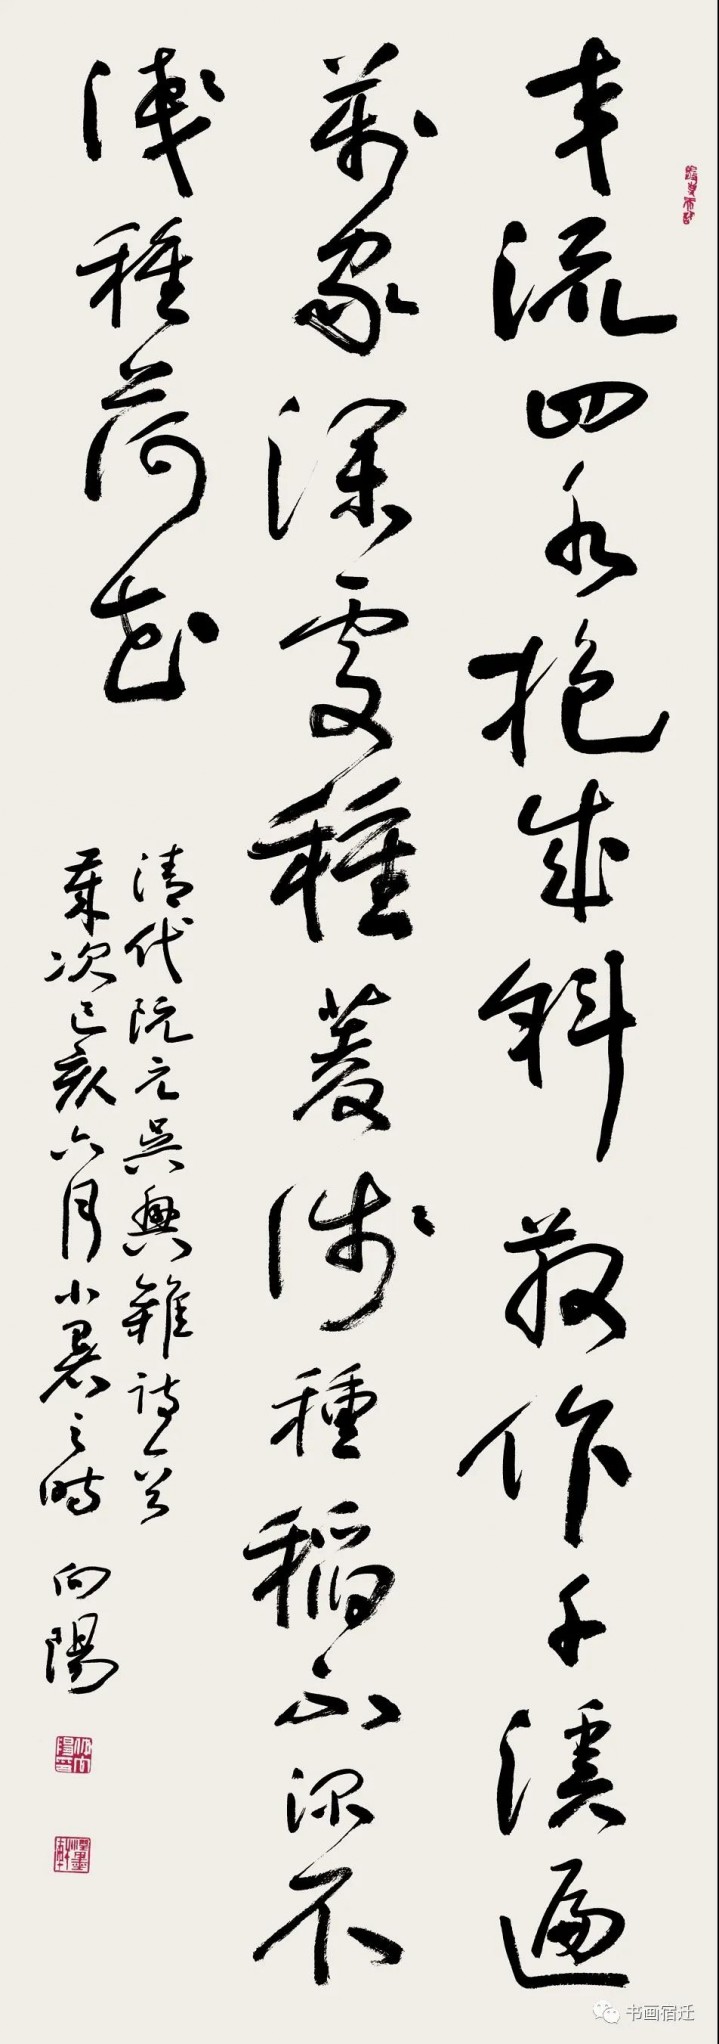 交流四水抱城斜散作千溪遍
萬家深處種菱淺種稻不深不
淺種荷花
清代阮元吳興雜詩一首
歲次己亥六月小暑之時 向陽
书画宿迁